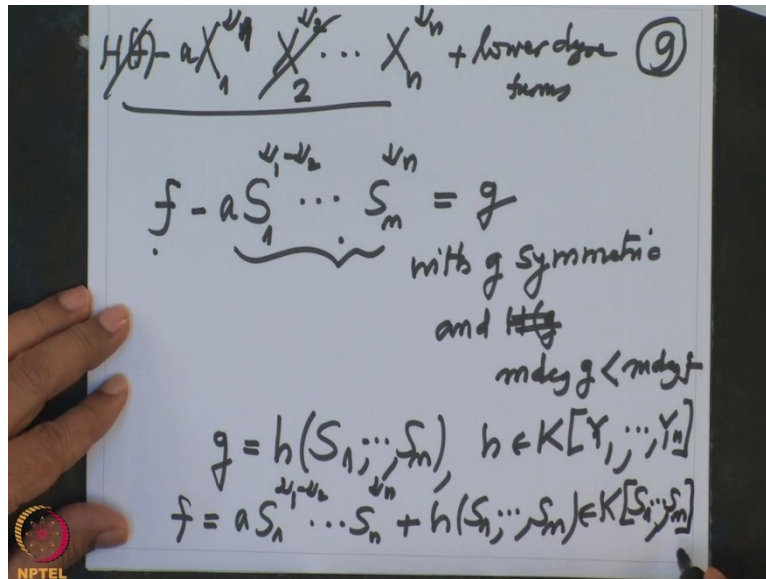 H(f) - aX_1^{ν_1} X_2^{ν_2} ⋯ X_n^{ν_n} + lower degree ⑨
terms
f - a S_1^{ν_1-ν_2} ⋯ S_n^{ν_n} = g
with g symmetric
and H(g
mdeg g < mdeg f
g = h(S_1, ⋯, S_n), h ∈ K[Y_1, ⋯, Y_n]
f = a S_1^{ν_1-ν_2} ⋯ S_n^{ν_n} + h(S_1, ⋯, S_n) ∈ K[S_1, ⋯, S_n]
NPTEL